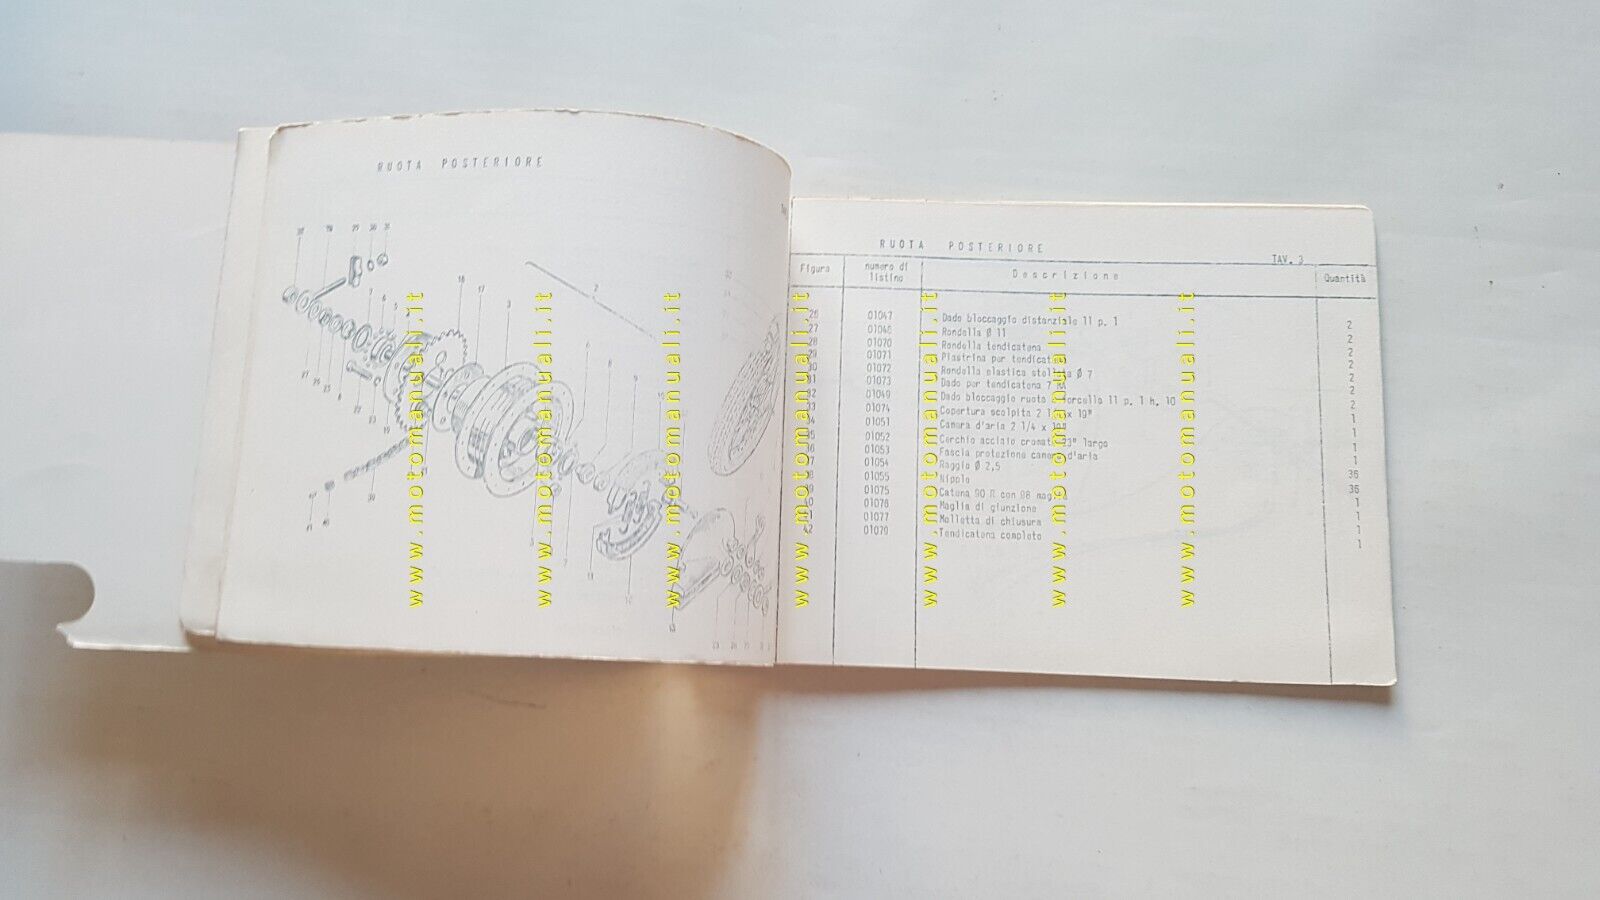 RUOTA POSTERIORE
RUOTA POSTERIORE
TAV. 3
Figura numero di listino Descrizione Quantità
26 01047 Dado bloccaggio distanziale 11 p. 1 2
27 01048 Rondella Ø 11 2
28 01070 Rondella tendicatena 2
29 01071 Piastrina per tendicatena 2
30 01072 Rondella elastica stellata Ø 7 2
31 01073 Dado per tendicatena 7 MA 2
32 01049 Dado bloccaggio ruota a forcella 11 p. 1 h. 10 2
33 01074 Copertura scolpita 2 1/4 x 19" 1
34 01051 Camera d'aria 2 1/4 x 19" 1
35 01052 Cerchio acciaio cromato largo 1
36 01053 Fascia protezione camera d'aria 1
01054 Raggio Ø 2,5 36
38 01055 Nipplo 36
01075 Catena 90 R con 98 maglie 1
40 01076 Maglia di giunzione 1
41 01077 Molletta di chiusura 1
42 01079 Tendicatena completo 1
www.motomanuali.it
www.motomanuali.it
www.motomanuali.it
www.motomanuali.it
www.motomanuali.it
www.motomanuali.it
www.motomanuali.it